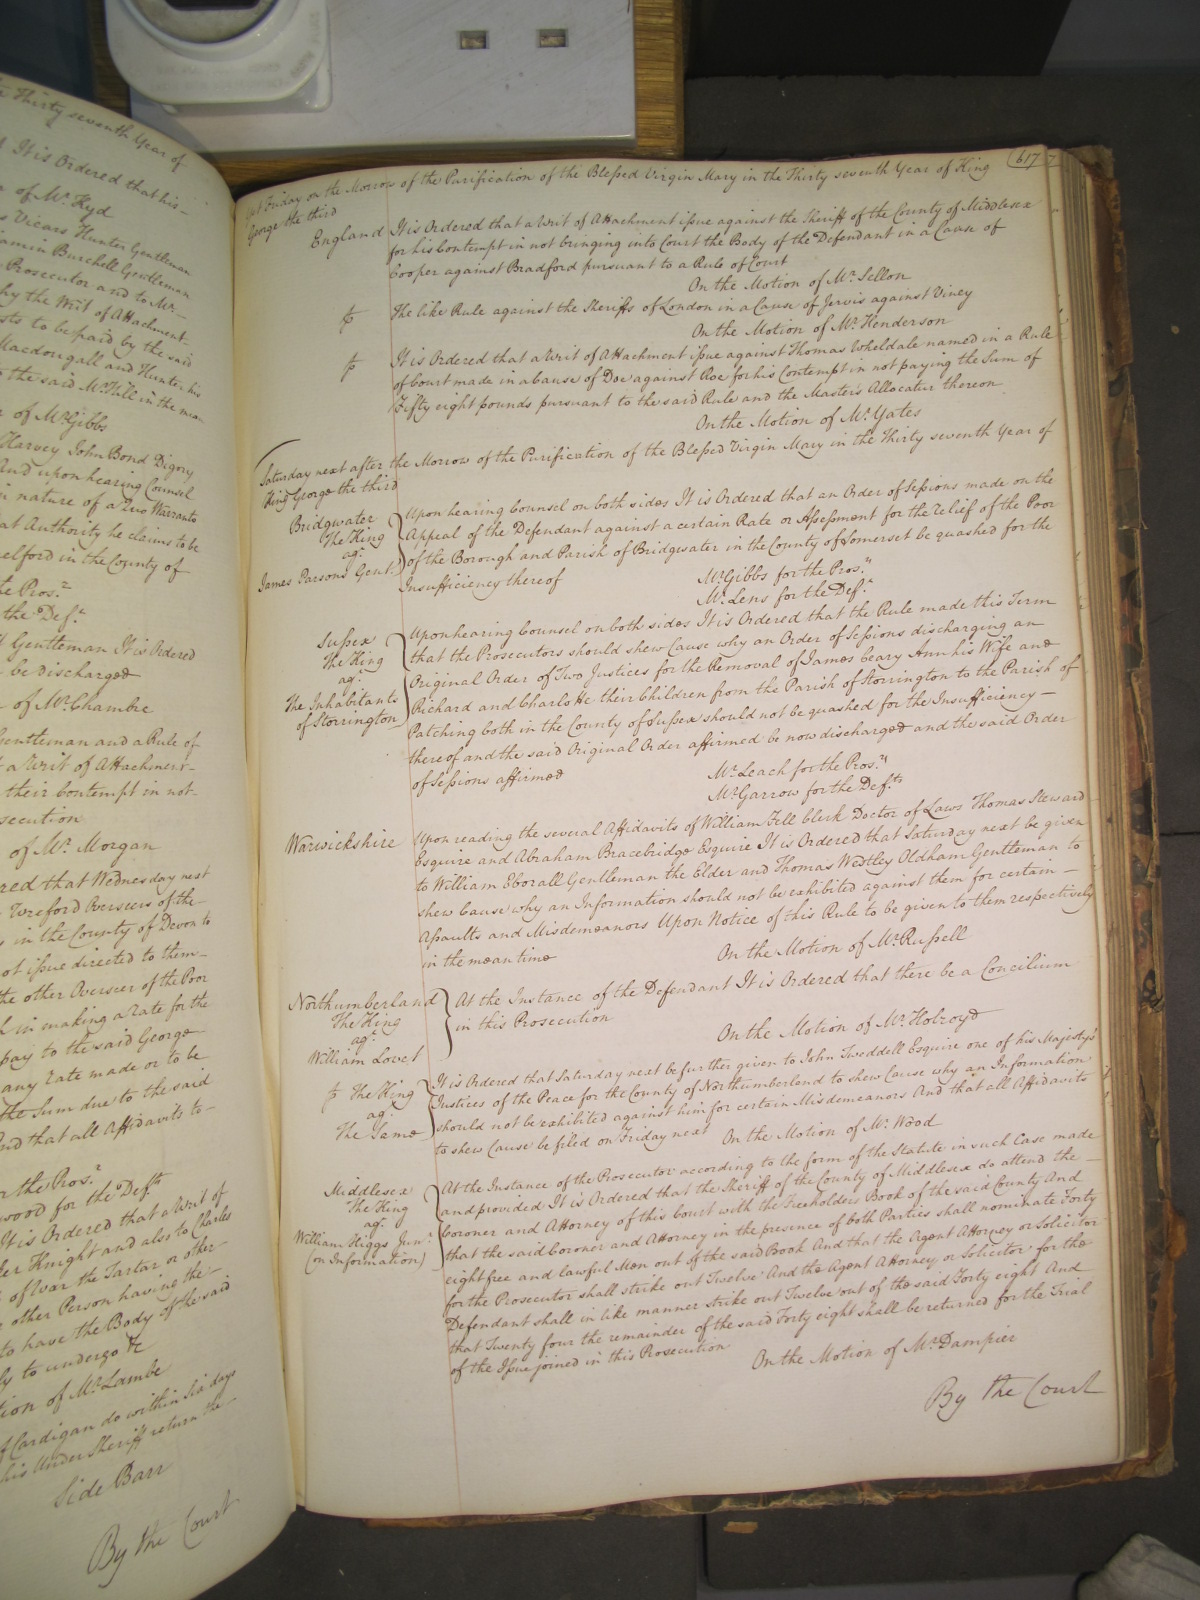 the Thirty seventh Year of
It is Ordered that his
of Mr. Kyd
Vicars Hunter Gentleman
Benjamin Burchell Gentleman
Prosecutor and to Mr.
why the Writ of Attachment
costs to be paid by the said
Macdougall and Hunter his
the said Mr. Hill in the mean
of Mr. Gibbs
Harvey John Bond Digory
And upon hearing Counsel
in nature of a Quo Warranto
what Authority he claims to be
in the County of
the Pros.r
the Def.t
Gentleman It is Ordered
be discharged
of Mr. Chambre
Gentleman and a Rule of
a Writ of Attachment
their Contempt in not
Prosecution
of Mr. Morgan
Ordered that Wednesday next
Overseers of the
in the County of Devon to
not issue directed to them
the other Overseer of the Poor
in making a Rate for the
pay to the said George
any Rate made or to be
the Sum due to the said
And that all Affidavits to
for the Pros.r
wood for the Def.ts
It is Ordered that a Writ of
Knight and also to Charles
of War the Tartar or other
other Person having the
to have the Body of the said
to undergo &c
Motion of Mr. Lambe
of Cardigan do within Six days
his Under Sheriff return the
Side Barr
By the Court
617
Yet Friday on the Morrow of the Purification of the Blessed Virgin Mary in the Thirty seventh Year of King
George the third
England It is Ordered that a Writ of Attachment issue against the Sheriff of the County of Middlesex
for his Contempt in not bringing into Court the Body of the Defendant in a Cause of
Cooper against Bradford pursuant to a Rule of Court
On the Motion of Mr. Sellon
The like Rule against the Sheriffs of London in a Cause of Jervis against Viney
On the Motion of Mr. Henderson
It is Ordered that a Writ of Attachment issue against Thomas Wheldale named in a Rule
of Court made in a Cause of Doe against Roe for his Contempt in not paying the Sum of
Fifty eight pounds pursuant to the said Rule and the Masters Allocatur thereon
On the Motion of Mr. Yates
Saturday next after the Morrow of the Purification of the Blessed Virgin Mary in the Thirty seventh Year of
King George the third
Bridgwater
The King
ag.t
James Parsons Gent.
Upon hearing Counsel on both sides It is Ordered that an Order of Sessions made on the
Appeal of the Defendant against a certain Rate or Assessment for the relief of the Poor
of the Borough and Parish of Bridgwater in the County of Somerset be quashed for the
Insufficiency thereof
Mr. Gibbs for the Pros.rs
Mr. Lens for the Def.t
Sussex
The King
ag.t
The Inhabitants
of Storrington
Upon hearing Counsel on both sides It is Ordered that the Rule made this Term
that the Prosecutors should shew Cause why an Order of Sessions discharging an
Original Order of Two Justices for the Removal of James Geary Ann his Wife and
Richard and Charlotte their Children from the Parish of Storrington to the Parish of
Patching both in the County of Sussex should not be quashed for the Insufficiency
thereof and the said Original Order affirmed be now discharged and the said Order
of Sessions affirmed
Mr. Leach for the Pros.rs
Mr. Garrow for the Def.ts
Warwickshire
Upon reading the several Affidavits of William Fell Clerk Doctor of Laws Thomas Steward
Esquire and Abraham Bracebridge Esquire It is Ordered that Saturday next be given
to William Eborall Gentleman the Elder and Thomas Westley Oldham Gentleman to
shew Cause why an Information should not be exhibited against them for certain
Assaults and Misdemeanors Upon Notice of this Rule to be given to them respectively
in the mean time
On the Motion of Mr. Russell
Northumberland
The King
ag.t
William Lovel
At the Instance of the Defendant It is Ordered that there be a Concilium
in this Prosecution
On the Motion of Mr. Holroyd
The King
ag.t
The Same
It is Ordered that Saturday next be further given to John Tweddell Esquire one of his Majesty's
Justices of the Peace for the County of Northumberland to shew Cause why an Information
should not be exhibited against him for certain Misdemeanors And that all Affidavits
to shew Cause be filed on Friday next
On the Motion of Mr. Wood
Middlesex
The King
ag.t
William Higgs Jun.r
(on Information)
At the Instance of the Prosecutor according to the form of the Statute in such Case made
and provided It is Ordered that the Sheriff of the County of Middlesex do attend the
Coroner and Attorney of this Court with the Freeholders Book of the said County And
that the said Coroner and Attorney in the presence of both Parties shall nominate Forty
eight free and lawful Men out of the said Book And that the Agent Attorney or Solicitor
for the Prosecutor shall strike out Twelve And the Agent Attorney or Solicitor for the
Defendant shall in like manner strike out Twelve out of the said Forty eight And
that Twenty four the remainder of the said Forty eight shall be returned for the Trial
of the Issue joined in this Prosecution
On the Motion of Mr. Dampier
By the Court